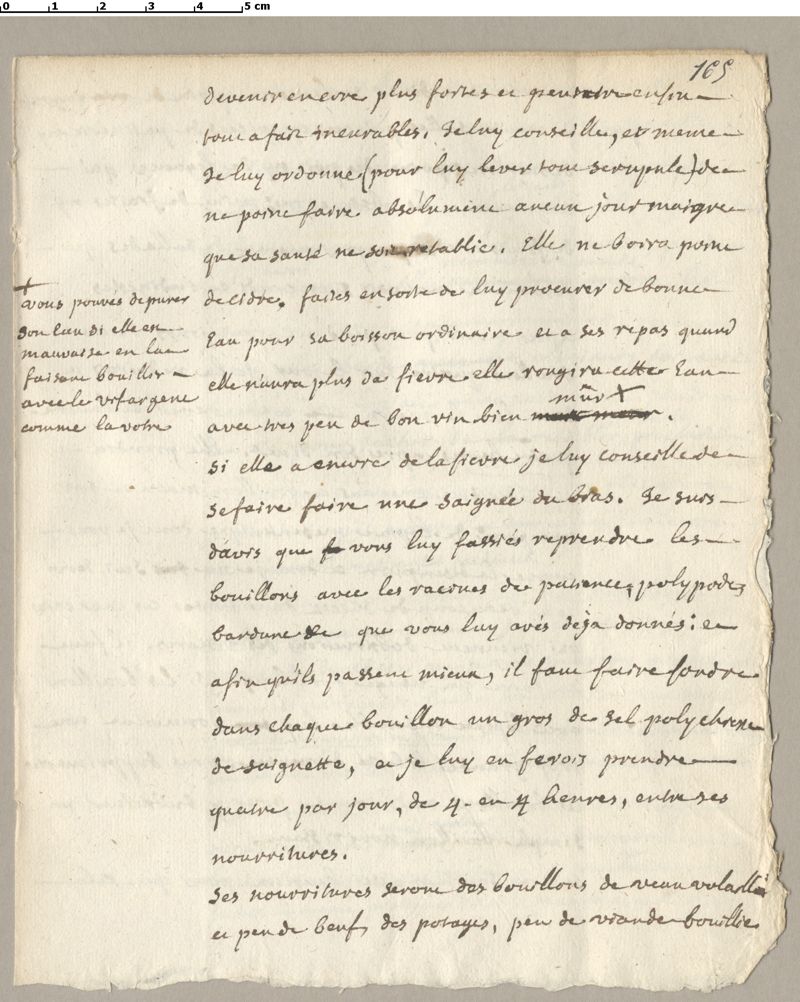 0 1 2 3 4 5 cm
165
devenir encore plus fortes et peutetre enfin
tout a fait incurables. Je luy conseille, et meme
Je luy ordonne (pour luy lever tout scrupule) de
ne point faire absolument aucun jour maigre
que sa santé ne soit retablie. Elle ne boira point
de cidre. faites ensorte de luy procurer de bonne
Eau pour sa boisson ordinaire et a ses repas quand
elle n'aura plus de fievre elle rougira cette Eau
avec tres peu de bon vin bien mûr +.
+
vous pouvés depurer
son Eau si elle est
mauvaise en la
faisant bouillir
avec le vif argent
comme la votre
si elle a encore de la fievre je luy conseille de
se faire faire une saignée du bras. Je suis
d'avis que vous luy fassiés reprendre les
bouillons avec les racines de patience, polypode,
bardane &c que vous luy avés deja donnés: et
afin qu'ils passent mieux, il faut faire fondre
dans chaque bouillon un gros de sel polychreste
de saignette, et je luy en ferois prendre
quatre par jour, de 4 en 4 heures, entre ses
nourritures.
Ses nourritures seront des bouillons de veau volaille
et peu de beuf, des potages, peu de viande bouillie